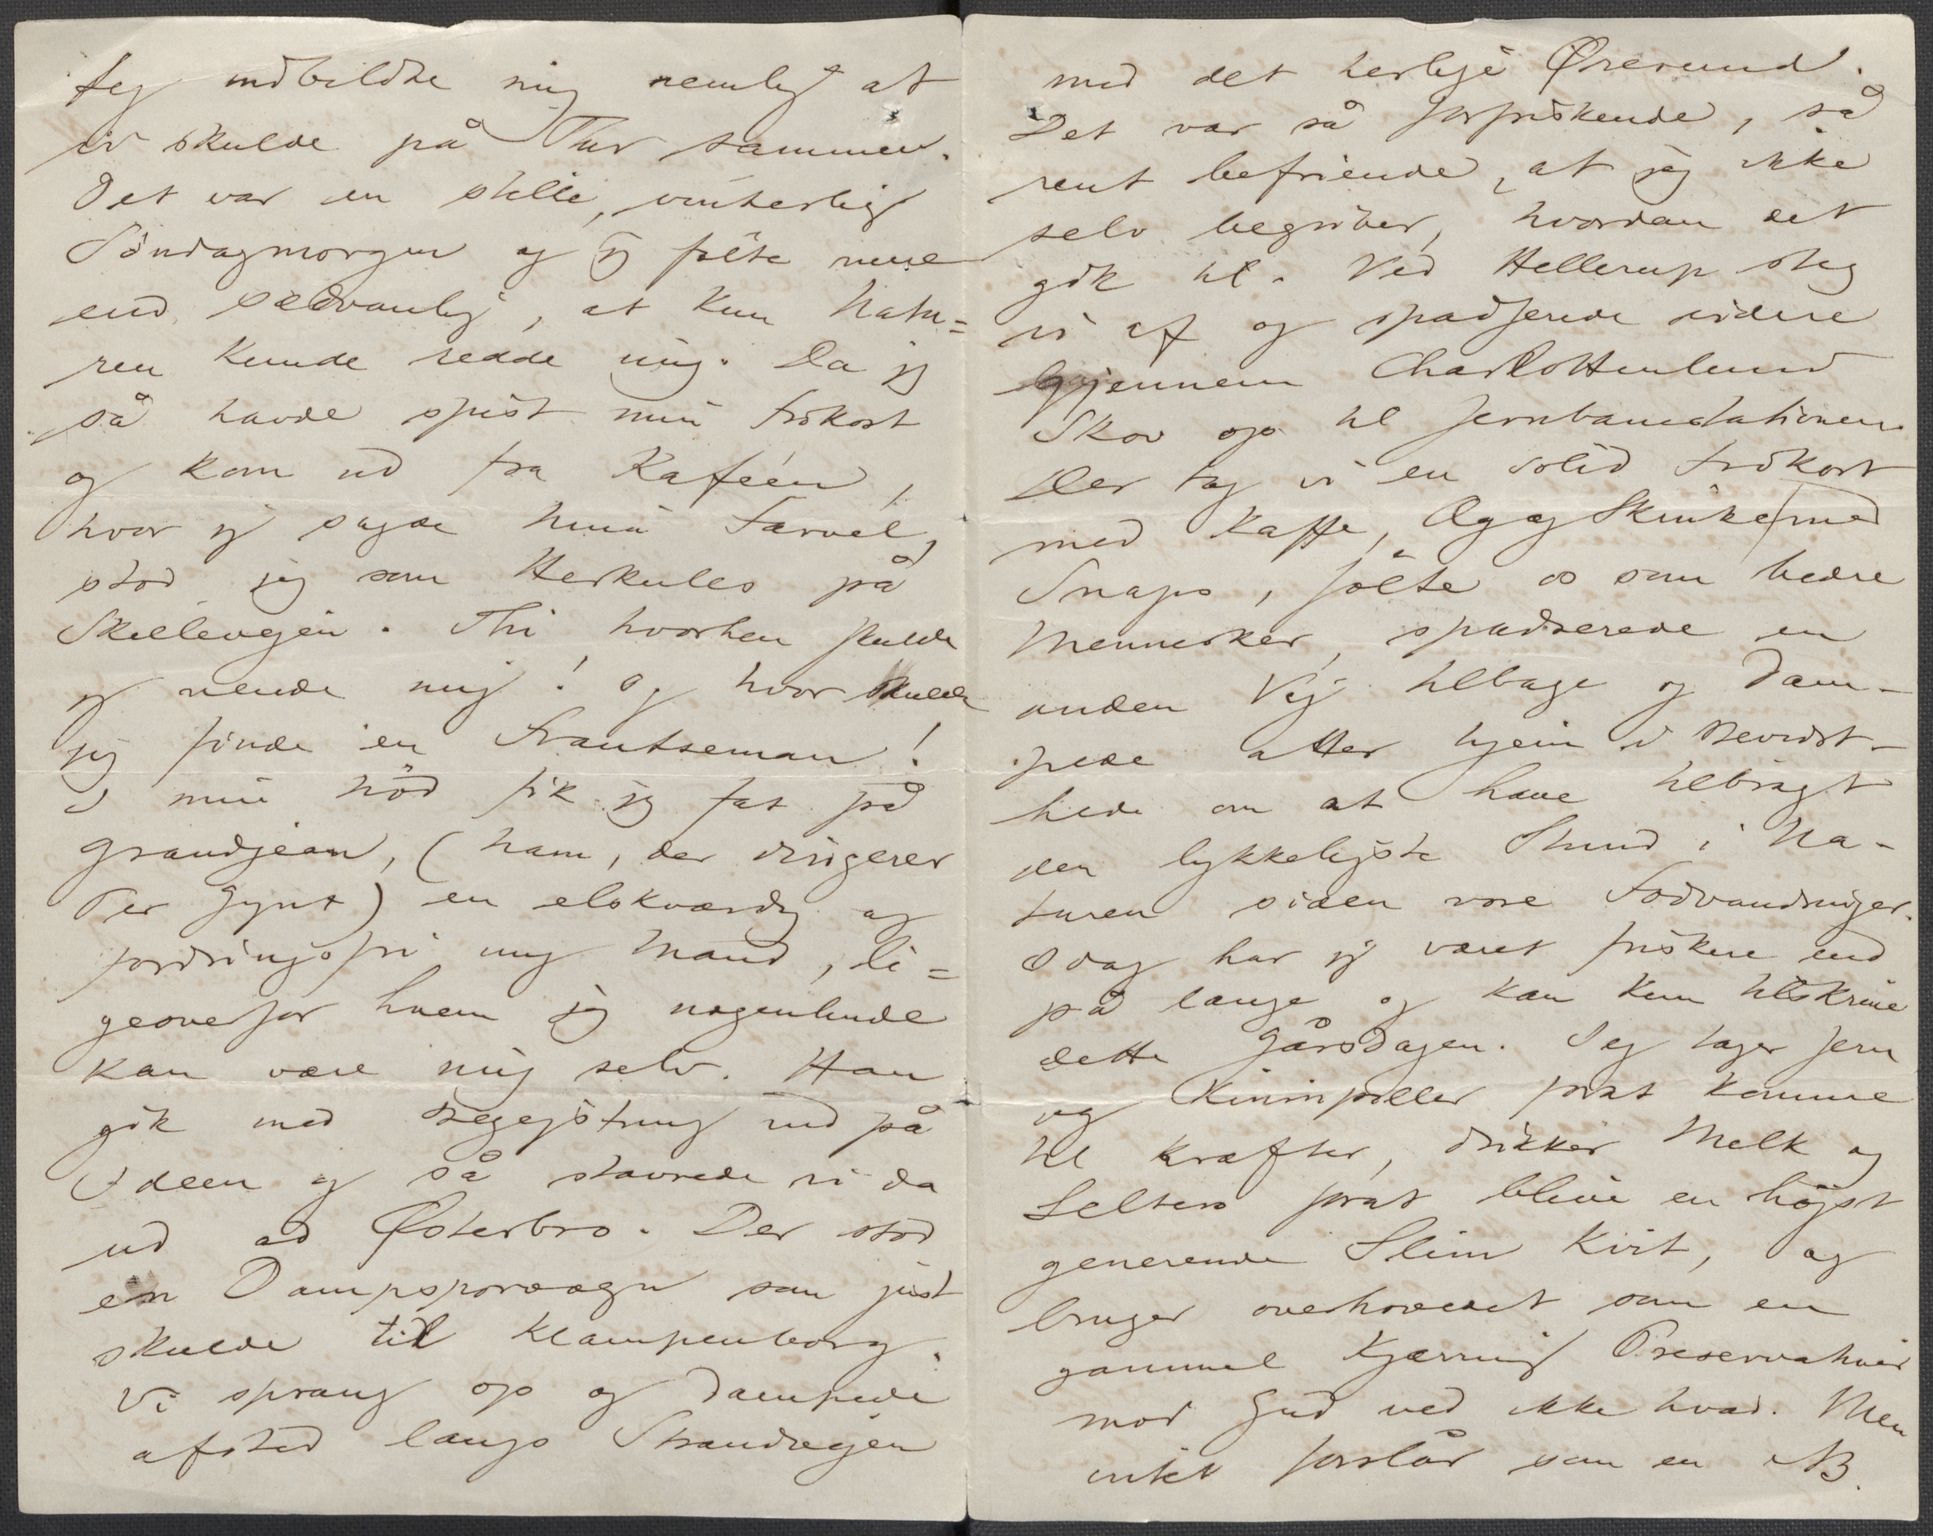 Jeg indbildte mig nemlig at
vi skulde på Thur sammen.
Det var en stille, vinterlig
Söndagmorgen og jeg fölte mere
end sedvanlig, at kun Natu=
ren kunde redde mig. Da jeg
så havde spist min Frokost
og kom ud fra Kaféen,
hvor jeg sagde hina Farvel,
stod jeg som Herkules på
Skilleveien. Thi hvorhen skulde
jeg vende mig! Og hvor skulde
jeg finde en Frantseman!
I min Nöd fik jeg fat på
Grandjean, (ham, der dirigerer
Per Gynt) en elskværdig og
fordringsfri ung Mand, li=
geoverfor hvem jeg nogenlunde
kan være mig selv. Han
gik med Begejstring ind på
Ideen og så stavrede vi da
ud ad Østerbro. Der stod
en Dampsporvogn som just
skulde til Klampenborg.
Vi sprang op og dampede
afsted langs Strandvejen
med det herlige Øresund.
Det var så forfriskende, så
rent befriende, at jeg ikke
selv begriber, hvordan det
gik til. Ved Hellerup steg
vi af og spadserede videre
gjennem Charlottenlund
Skov op til Jernbanestationen.
Der tog vi en solid Frokost
med Kaffe, Æg og Skinke med
Snaps, fölte os som bedre
Mennesker, spadserede en
anden Vej tilbage og dam-
pede atter hjem i Bevidst-
hede om at have tilbragt
den lykkeligste Stund i Na-
turen siden vore Fodvandringer.
I dag har jeg været friskere end
på længe og kan kun tilskrive
dette Gårsdagen. Jeg tager Jern
og Kininpiller forat komme
til Kræfter, drikker Melk og
Selters forat blive en höjst
generende Slim kvit, og
bruger overhovedet som en
gammel Kjærring Preservativer
mod Gud ved ikke hvad. Men
intet forslår som en NB.